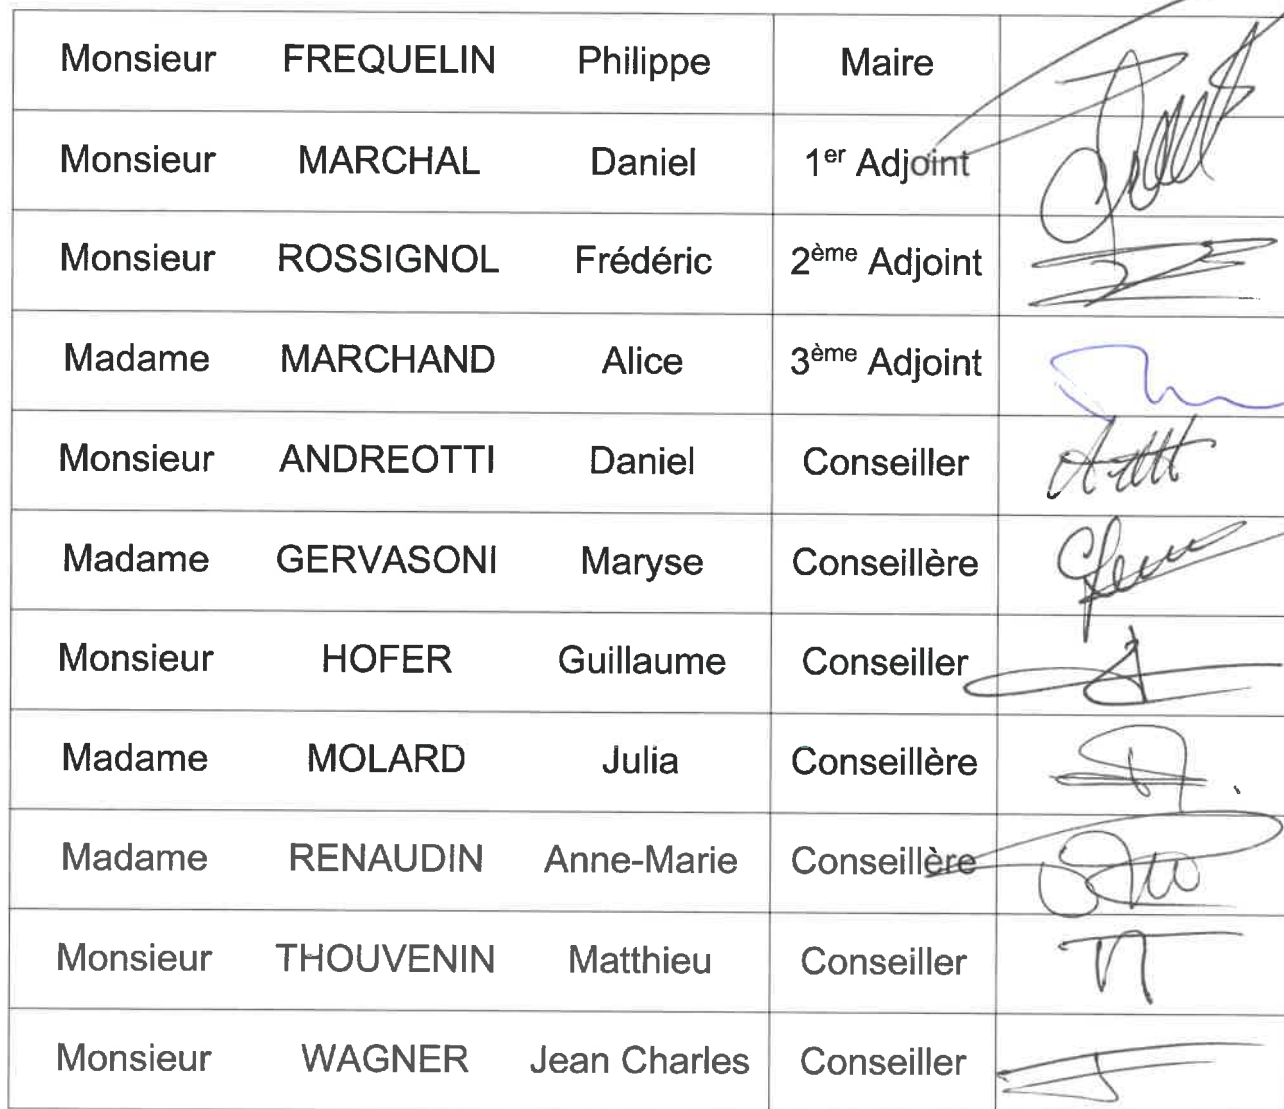 Monsieur FREQUELIN Philippe Maire
Monsieur MARCHAL Daniel 1er Adjoint
Monsieur ROSSIGNOL Frédéric 2ème Adjoint
Madame MARCHAND Alice 3ème Adjoint
Monsieur ANDREOTTI Daniel Conseiller
Madame GERVASONI Maryse Conseillère
Monsieur HOFER Guillaume Conseiller
Madame MOLARD Julia Conseillère
Madame RENAUDIN Anne-Marie Conseillère
Monsieur THOUVENIN Matthieu Conseiller
Monsieur WAGNER Jean Charles Conseiller